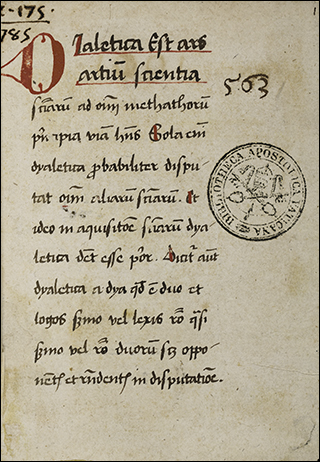 E·175·
1785
1
Dialetica Est ars
artiũ scientia
sciãrũ ad om̃ methathorũ
pñ ipia viã hñs Sola em̃
dyaletica ꝓbabiliter dispu
tat om̃ aliarũ sciãrũ. Et
ideo in aquisitõe sciãrũ dya
letica dẽt esse p̃or. Dicit̃ aũt
dyaletica a dya qđ ẽ duo et
logos ẜmo vel lexis rõ q̃si
ẜmo vel rõ duorũ scꝫ oppo
nẽtꝭ et rñdentꝭ in disputatiõe.
563
BIBLIOTHECA APOSTOLICA VATICANA